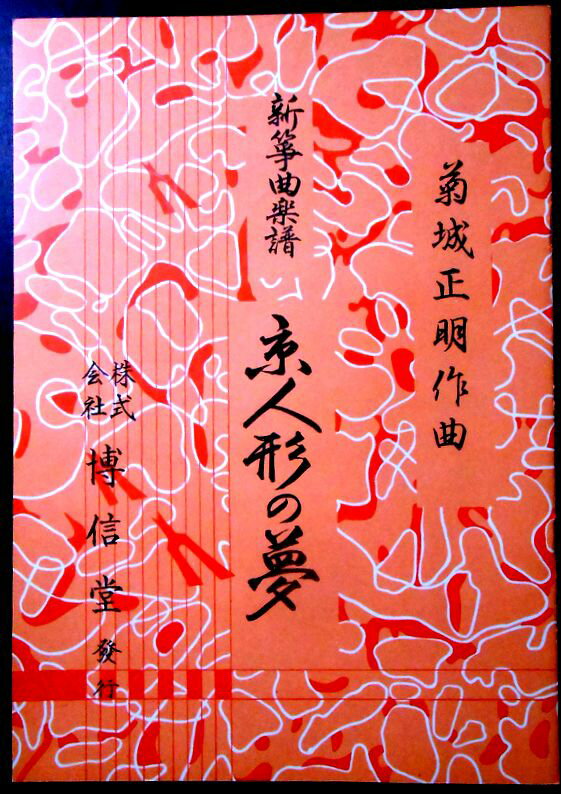 菊城正明作曲
新箏曲楽譜
京人形の夢
株式
会社
博信堂發行